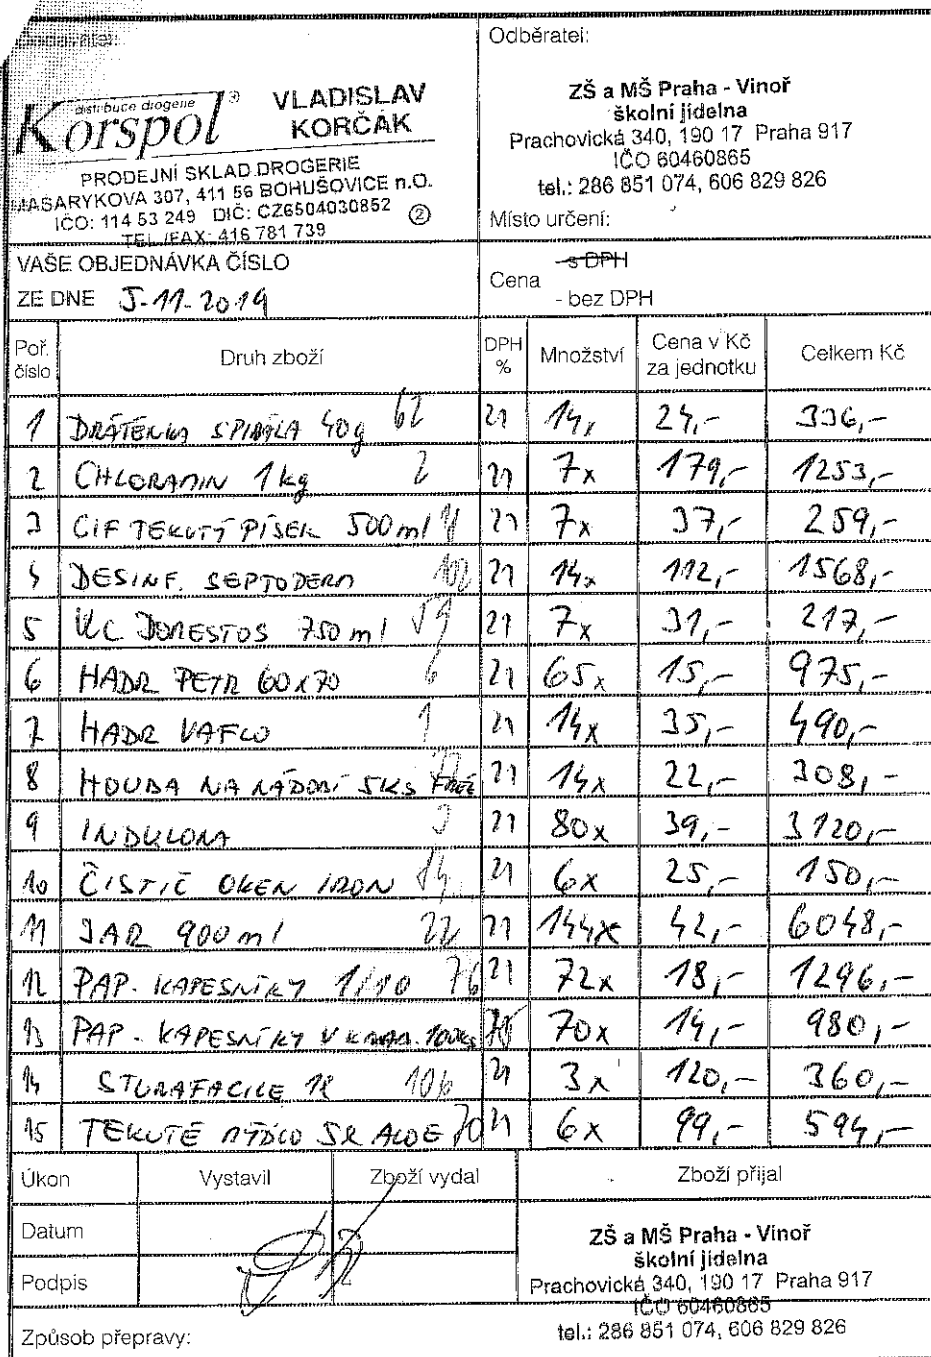 Odběratel:
distribuce drogerie
Korspol®
VLADISLAV
KORČAK
PRODEJNÍ SKLAD DROGERIE
MASARYKOVA 307, 411 56 BOHUŠOVICE n.O.
IČO: 114 53 249 DIČ: CZ6504030852 ②
TEL./FAX: 416 781 739
ZŠ a MŠ Praha - Vinoř
školní jídelna
Prachovická 340, 190 17 Praha 917
IČO 60460865
tel.: 286 851 074, 606 829 826
Místo určení:
VAŠE OBJEDNÁVKA ČÍSLO
ZE DNE 5-11-2019
Cena - s DPH
- bez DPH
Poř. číslo Druh zboží DPH % Množství Cena v Kč za jednotku Celkem Kč
1 DRÁTĚNKA SPIRÁLA 40g 62 21 14x 24,- 336,-
2 CHLORAMIN 1kg 2 21 7x 179,- 1253,-
3 CIF TEKUTÝ PÍSEK 500ml 21 7x 37,- 259,-
4 DESINF. SEPTODERM 102 21 14x 112,- 1568,-
5 WC DOMESTOS 750ml 59 21 7x 31,- 217,-
6 HADR PETR 60x70 6 21 65x 15,- 975,-
7 HADR VAFLO 1 21 14x 35,- 490,-
8 HOUBA NA NÁDOBÍ 5KS 21 14x 22,- 308,-
9 INDULONA 3 21 80x 39,- 3120,-
10 ČISTIČ OKEN IRON 14 21 6x 25,- 150,-
11 JAR 900ml 22 21 144x 42,- 6048,-
12 PAP. KAPESNÍKY 1/10 76 21 72x 18,- 1296,-
13 PAP. KAPESNÍKY V KRAB. 100ks 70x 14,- 980,-
14 STURAFACILE 1l 106 21 3x 120,- 360,-
15 TEKUTÉ MÝDLO 5l ALOE 70 21 6x 99,- 594,-
Úkon Vystavil Zboží vydal Zboží přijal
Datum
Podpis
ZŠ a MŠ Praha - Vinoř
školní jídelna
Prachovická 340, 190 17 Praha 917
IČO 60460865
tel.: 286 851 074, 606 829 826
Způsob přepravy: